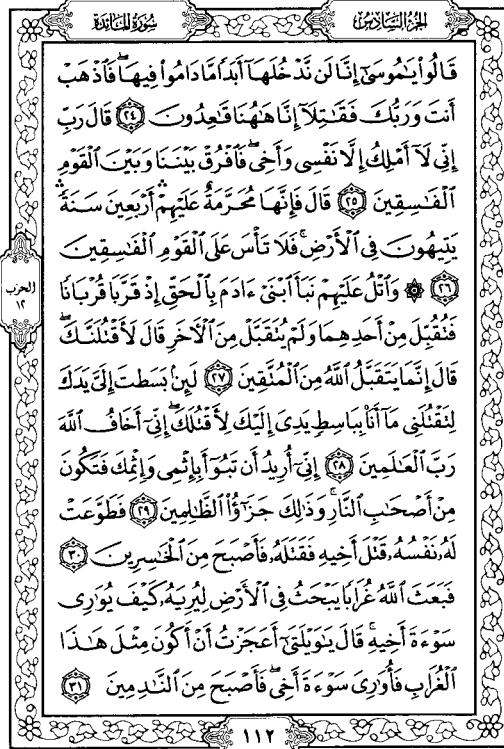 سُورَةُ المَائدَة
الجُزءُ السَّادِسُ
قَالُواْ يَٰمُوسَىٰٓ إِنَّا لَن نَّدۡخُلَهَآ أَبَدٗا مَّا دَامُواْ فِيهَا فَٱذۡهَبۡ
أَنتَ وَرَبُّكَ فَقَٰتِلَآ إِنَّا هَٰهُنَا قَٰعِدُونَ ٢٤ قَالَ رَبِّ
إِنِّي لَآ أَمۡلِكُ إِلَّا نَفۡسِي وَأَخِيۖ فَٱفۡرُقۡ بَيۡنَنَا وَبَيۡنَ ٱلۡقَوۡمِ
ٱلۡفَٰسِقِينَ ٢٥ قَالَ فَإِنَّهَا مُحَرَّمَةٌ عَلَيۡهِمۡۛ أَرۡبَعِينَ سَنَةٗۛ
يَتِيهُونَ فِي ٱلۡأَرۡضِۚ فَلَا تَأۡسَ عَلَى ٱلۡقَوۡمِ ٱلۡفَٰسِقِينَ
٢٦ ۞ وَٱتۡلُ عَلَيۡهِمۡ نَبَأَ ٱبۡنَيۡ ءَادَمَ بِٱلۡحَقِّ إِذۡ قَرَّبَا قُرۡبَانٗا
فَتُقُبِّلَ مِنۡ أَحَدِهِمَا وَلَمۡ يُتَقَبَّلۡ مِنَ ٱلۡأٓخَرِ قَالَ لَأَقۡتُلَنَّكَۖ
قَالَ إِنَّمَا يَتَقَبَّلُ ٱللَّهُ مِنَ ٱلۡمُتَّقِينَ ٢٧ لَئِنۢ بَسَطتَ إِلَيَّ يَدَكَ
لِتَقۡتُلَنِي مَآ أَنَا۠ بِبَاسِطٖ يَدِيَ إِلَيۡكَ لِأَقۡتُلَكَۖ إِنِّيٓ أَخَافُ ٱللَّهَ
رَبَّ ٱلۡعَٰلَمِينَ ٢٨ إِنِّيٓ أُرِيدُ أَن تَبُوٓأَ بِإِثۡمِي وَإِثۡمِكَ فَتَكُونَ
مِنۡ أَصۡحَٰبِ ٱلنَّارِۚ وَذَٰلِكَ جَزَٰٓؤُاْ ٱلظَّٰلِمِينَ ٢٩ فَطَوَّعَتۡ
لَهُۥ نَفۡسُهُۥ قَتۡلَ أَخِيهِ فَقَتَلَهُۥ فَأَصۡبَحَ مِنَ ٱلۡخَٰسِرِينَ ٣٠
فَبَعَثَ ٱللَّهُ غُرَابٗا يَبۡحَثُ فِي ٱلۡأَرۡضِ لِيُرِيَهُۥ كَيۡفَ يُوَٰرِي
سَوۡءَةَ أَخِيهِۚ قَالَ يَٰوَيۡلَتَىٰٓ أَعَجَزۡتُ أَنۡ أَكُونَ مِثۡلَ هَٰذَا
ٱلۡغُرَابِ فَأُوَٰرِيَ سَوۡءَةَ أَخِيۖ فَأَصۡبَحَ مِنَ ٱلنَّٰدِمِينَ ٣١
الحزب
١٢
١١٢